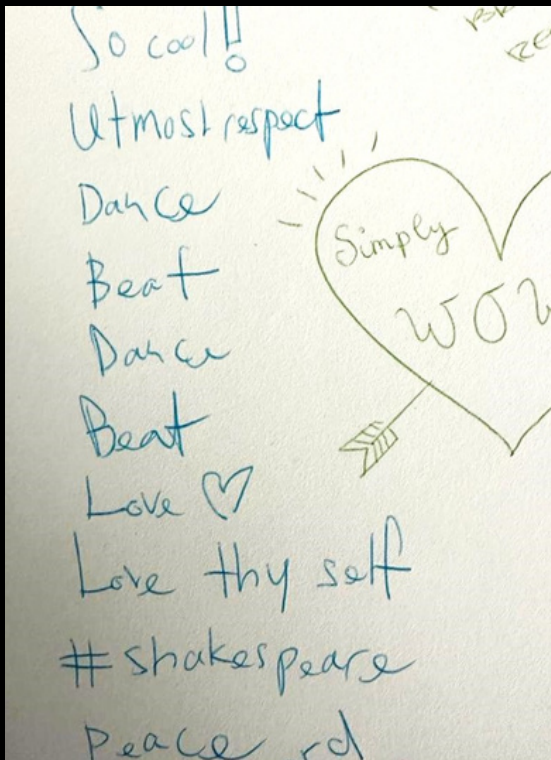 So cool!!
Utmost respect
Dance
Beat
Dance
Beat
Love ♡
Love thy self
#shakespeare
Peace rd
Simply
WOW